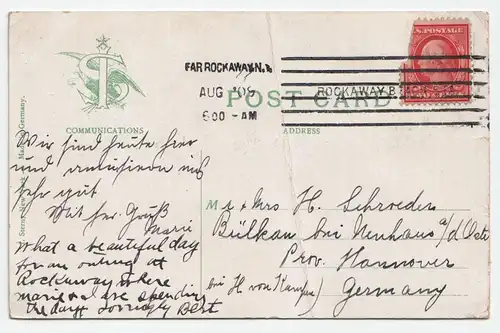 FAR ROCKAWAY N.Y.
AUG 09
600-AM
ROCKAWAY B
U.S. POSTAGE
POST CARD
COMMUNICATIONS
ADDRESS
Made in Germany.
Wir sind heute hier
und amüsieren uns
sehr gut
Mit hr. Gruß
Marie
What a beautiful day
for an outing at
Rockaway where
marie & I are spending
the day Lovingly Bert
Mr & Mrs H. Schroeder
Bülkau bei Neuhaus a/d Oste
Prov. Hannover
bei H von
Germany